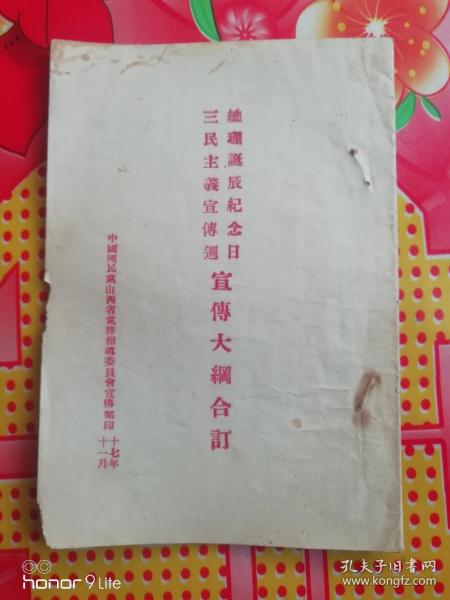 總理誕辰紀念日
三民主義宣傳週
宣傳大綱合訂
中國國民黨山西省黨務指導委員會宣傳部印
十七年
十一月
honor 9 Lite
孔夫子旧书网
www.kongfz.com